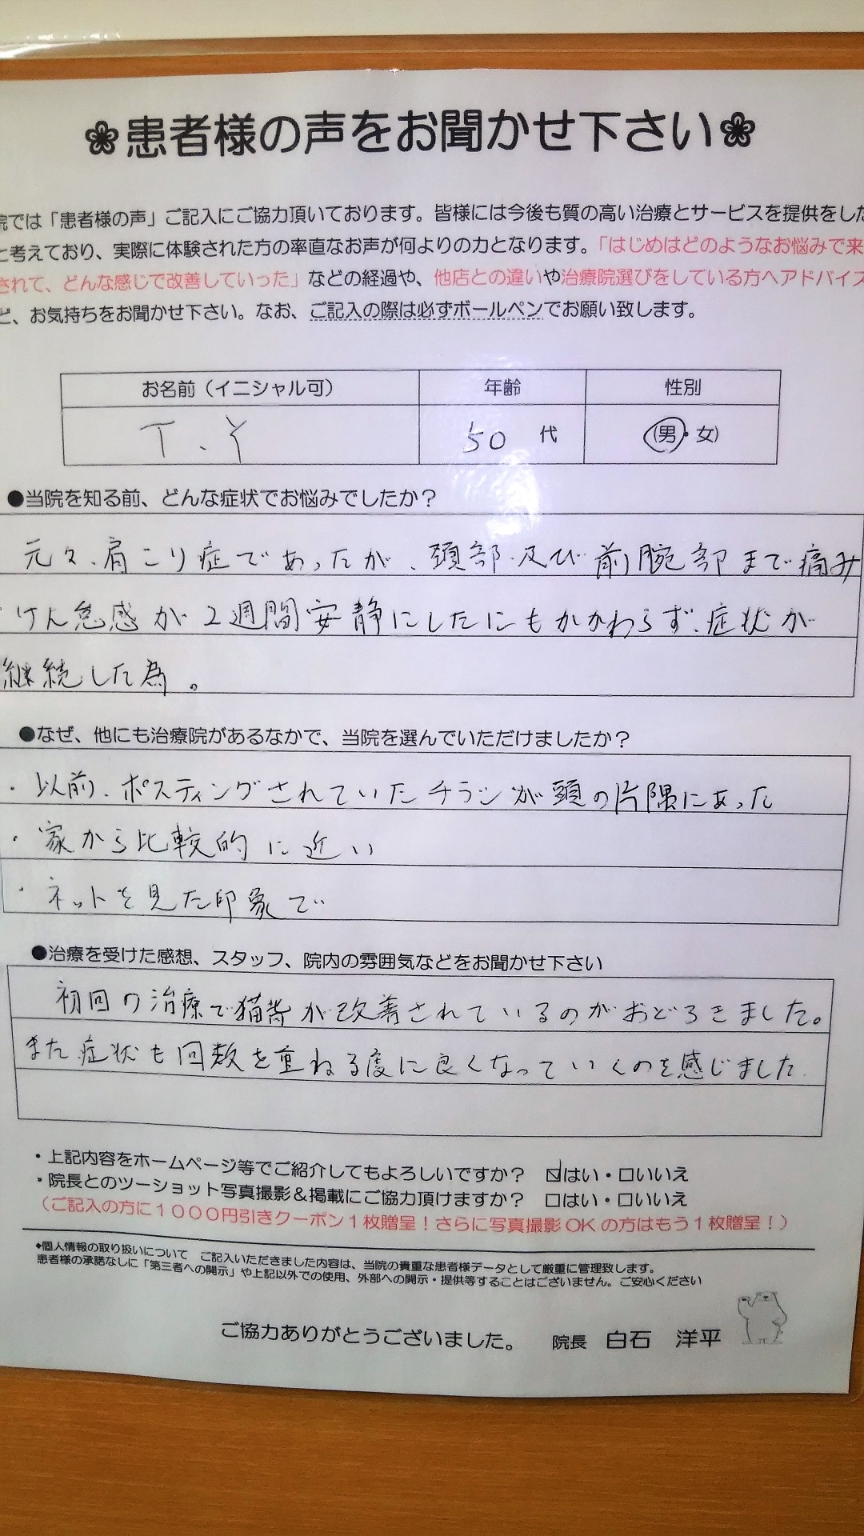 ❀患者様の声をお聞かせ下さい❀
院では「患者様の声」ご記入にご協力頂いております。皆様には今後も質の高い治療とサービスを提供をした
と考えており、実際に体験された方の率直なお声が何よりの力となります。「はじめはどのようなお悩みで来
されて、どんな感じで改善していった」などの経過や、他店との違いや治療院選びをしている方へアドバイス
ど、お気持ちをお聞かせ下さい。なお、ご記入の際は必ずボールペンでお願い致します。
お名前（イニシャル可） 年齢 性別
T.Y 50 代 (男・女)
●当院を知る前、どんな症状でお悩みでしたか？
元々、肩こり症であったが、頚部及び前腕部まで痛み
けん怠感が2週間安静にしたにもかかわらず、症状が
継続した為。
●なぜ、他にも治療院があるなかで、当院を選んでいただけましたか？
・以前、ポスティングされていたチラシが頭の片隅にあった
・家から比較的に近い
・ネットを見た印象で
●治療を受けた感想、スタッフ、院内の雰囲気などをお聞かせ下さい
初回の治療で猫背が改善されているのがおどろきました。
また症状も回数を重ねる度に良くなっていくのを感じました.
・上記内容をホームページ等でご紹介してもよろしいですか？ ☑はい・□いいえ
・院長とのツーショット写真撮影＆掲載にご協力頂けますか？ □はい・□いいえ
（ご記入の方に１０００円引きクーポン１枚贈呈！さらに写真撮影OKの方はもう１枚贈呈！）
◆個人情報の取り扱いについて ご記入いただきました内容は、当院の貴重な患者様データとして厳重に管理致します。
患者様の承諾なしに「第三者への開示」や上記以外での使用、外部への開示・提供等することはございません。ご安心ください
ご協力ありがとうございました。 院長 白石 洋平